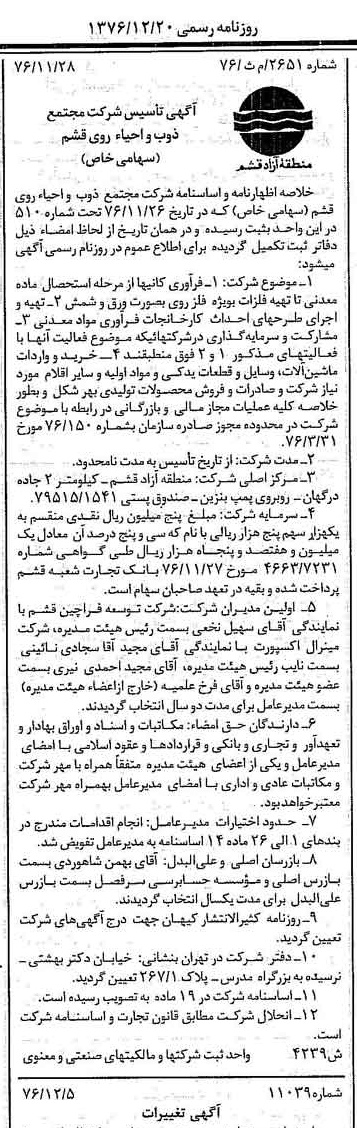 روزنامه رسمی ۱۳۷۶/۱۲/۲۰
شماره ۲۶۵۱/م ث/۷۶
۷۶/۱۱/۲۸
آگهی تأسیس شرکت مجتمع
ذوب و احیاء روی قشم
(سهامی خاص)
منطقه آزاد قشم
خلاصه اظهارنامه و اساسنامه شرکت مجتمع ذوب و احیاء روی
قشم (سهامی خاص) که در تاریخ ۷۶/۱۱/۲۶ تحت شماره ۵۱۰
در این واحد بثبت رسیده و در همان تاریخ از لحاظ امضاء ذیل
دفاتر ثبت تکمیل گردیده برای اطلاع عموم در روزنام رسمی آگهی
میشود:
۱ـ موضوع شرکت: ۱ـ فرآوری کانیها از مرحله استحصال ماده
معدنی تا تهیه فلزات بویژه فلز روی بصورت ورق و شمش ۲ـ تهیه و
اجرای طرحهای احداث کارخانجات فرآوری مواد معدنی ۳ـ
مشارکت و سرمایه‌گذاری در شرکتهائیکه موضوع فعالیت آنها با
فعالیتهای مذکور ۱ و ۲ فوق منطبقند ۴ـ خرید و واردات
ماشین‌آلات، وسایل و قطعات یدکی و مواد اولیه و سایر اقلام مورد
نیاز شرکت و صادرات و فروش محصولات تولیدی بهر شکل و بطور
خلاصه کلیه عملیات مجاز مالی و بازرگانی در رابطه با موضوع
شرکت در محدوده مجوز صادره سازمان بشماره ۷۶/۱۵۰ مورخ
۷۶/۳/۳۱.
۲ـ مدت شرکت: از تاریخ تأسیس به مدت نامحدود.
۳ـ مرکز اصلی شرکت: منطقه آزاد قشم ـ کیلومتر ۲ جاده
درگهان ـ روبروی پمپ بنزین ـ صندوق پستی ۷۹۵۱۵/۱۵۴۱.
۴ـ سرمایه شرکت: مبلغ پنج میلیون ریال نقدی منقسم به
یکهزار سهم پنج هزار ریالی با نام که سی و پنج درصد آن معادل یک
میلیون و هفتصد و پنجاه هزار ریال طی گواهی شماره
۴۶۶۳/۷۲۳۱ مورخ ۷۶/۱۱/۲۷ بانک تجارت شعبه قشم
پرداخت شده و بقیه در تعهد صاحبان سهام است.
۵ـ اولین مدیران شرکت: شرکت توسعه فراچین قشم با
نمایندگی آقای سهیل نخعی بسمت رئیس هیئت مدیره، شرکت
مینرال اکسپورت با نمایندگی آقای مجید آقا سجادی نائینی
بسمت نایب رئیس هیئت مدیره، آقای مجید احمدی نیری بسمت
عضو هیئت مدیره و آقای فرخ علمیه (خارج از اعضاء هیئت مدیره)
بسمت مدیرعامل برای مدت دو سال انتخاب گردیدند.
۶ـ دارندگان حق امضاء: مکاتبات و اسناد و اوراق بهادار و
تعهدآور و تجاری و بانکی و قراردادها و عقود اسلامی با امضای
مدیرعامل و یکی از اعضای هیئت مدیره متفقاً همراه با مهر شرکت
و مکاتبات عادی و اداری با امضای مدیرعامل بهمراه مهر شرکت
معتبر خواهد بود.
۷ـ حدود اختیارات مدیرعامل: انجام اقدامات مندرج در
بندهای ۱ الی ۲۶ ماده ۱۴ اساسنامه به مدیرعامل تفویض شد.
۸ـ بازرسان اصلی و علی‌البدل: آقای بهمن شاهوردی بسمت
بازرس اصلی و مؤسسه حسابرسی سرفصل بسمت بازرس
علی‌البدل برای مدت یکسال انتخاب گردیدند.
۹ـ روزنامه کثیرالانتشار کیهان جهت درج آگهی‌های شرکت
تعیین گردید.
۱۰ـ دفتر شرکت در تهران بنشانی: خیابان دکتر بهشتی ـ
نرسیده به بزرگراه مدرس ـ پلاک ۲۶۷/۱ تعیین گردید.
۱۱ـ اساسنامه شرکت در ۱۹ ماده به تصویب رسیده است.
۱۲ـ انحلال شرکت مطابق قانون تجارت و اساسنامه شرکت
است.
ش۴۲۳۹ واحد ثبت شرکتها و مالکیتهای صنعتی و معنوی
شماره ۱۱۰۳۹
۷۶/۱۲/۵
آگهی تغییرات